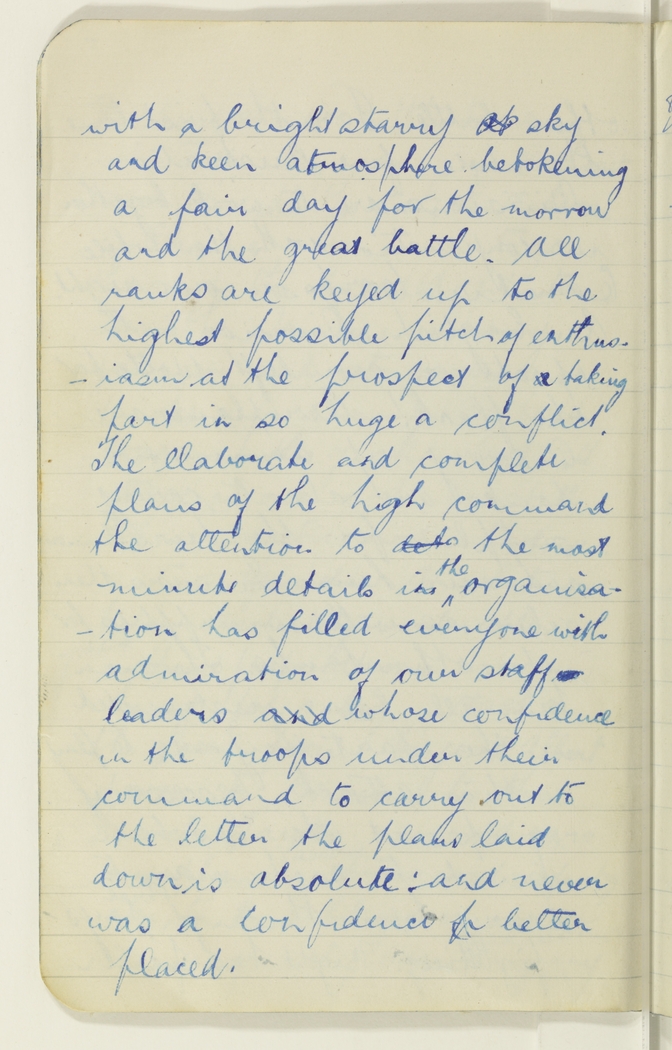 with a bright starry sky
and keen atmosphere betokening
a fair day for the morrow
and the great battle. All
ranks are keyed up to the
highest possible pitch of enthus-
- iasm at the prospect of taking
part in so huge a conflict.
The elaborate and complete
plans of the high command
the attention to deta the most
minute details in the organisa-
- tion has filled everyone with
admiration of our staff
leaders and whose confidence
in the troops under their
command to carry out to
the letter the plans laid
down is absolute: and never
was a confidence better
placed.